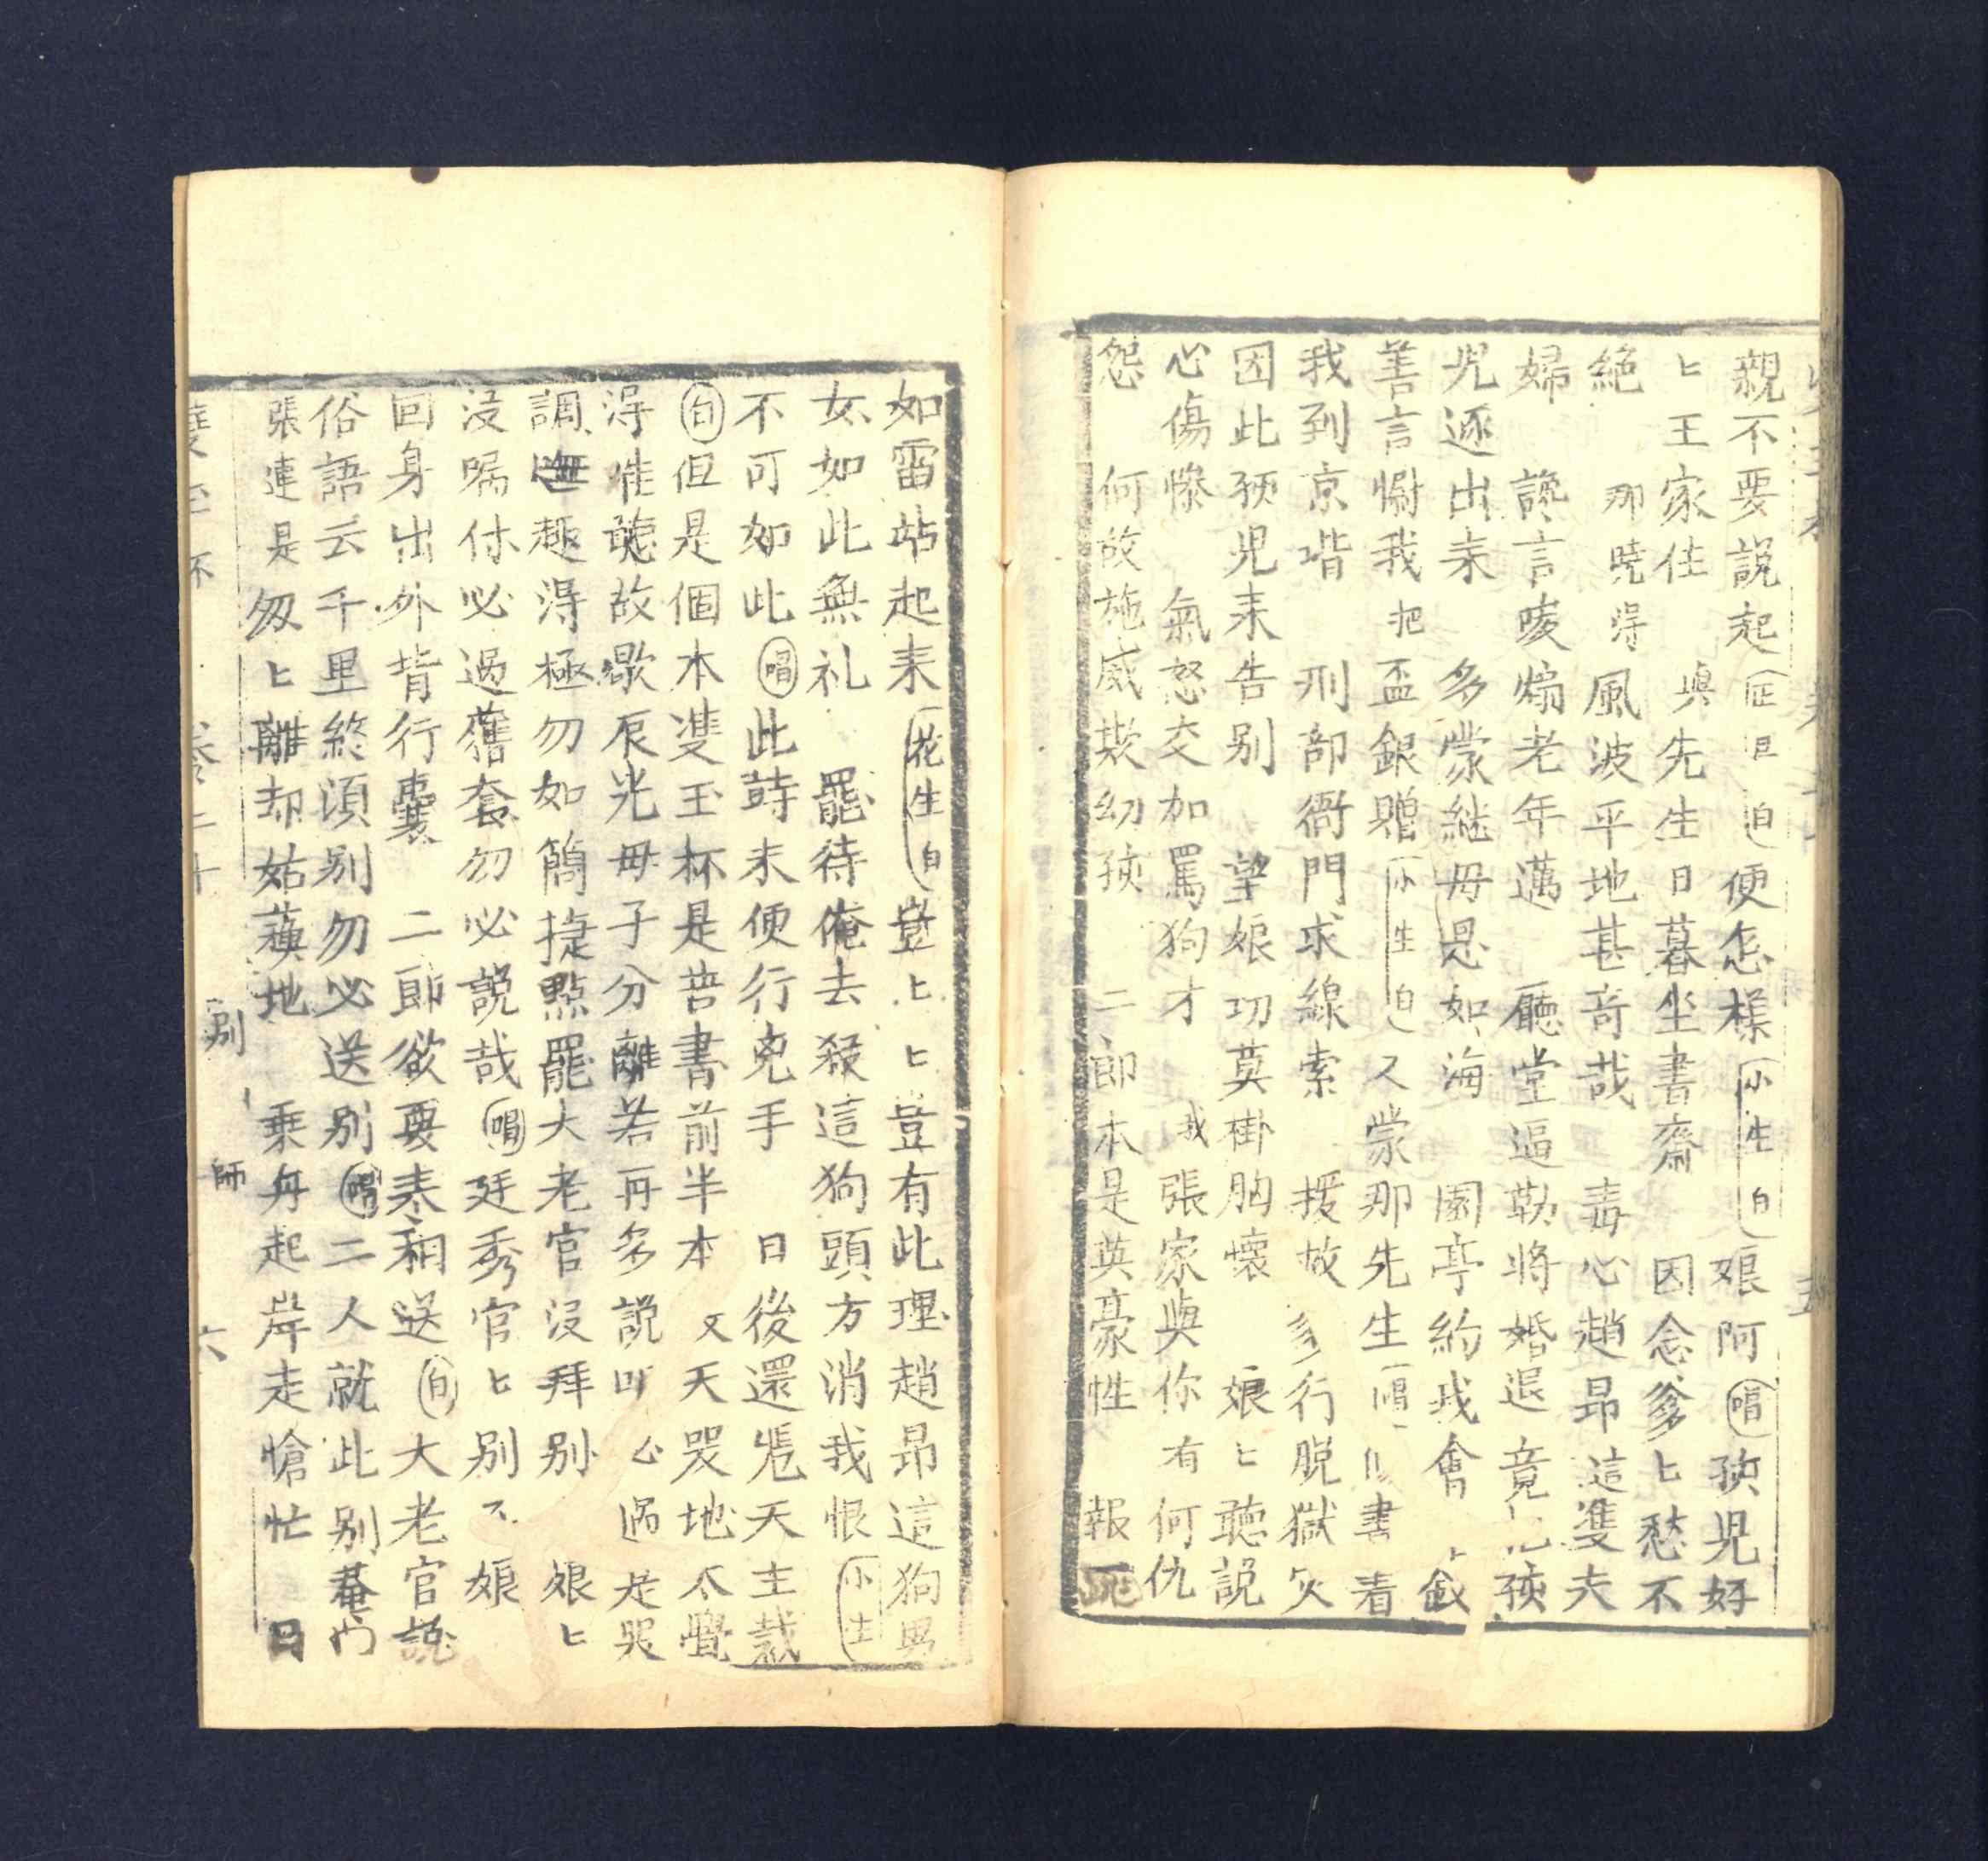 親不要説起(正旦白)便怎樣(小生白)娘阿(唱)孩児好
匕王家住 與先生日暮坐書齋 因念爹匕愁不
絶 那曉得風波平地甚奇哉 毒心趙昂這隻夫
婦 讒言唆煽老年邁 廳堂逼勒將婚退 竟 孩
児逐出来 多蒙継母恩如海 園亭約我會
善言慰我把盃銀贈(小生白)又蒙那先生(唱) 書看
我到京堦 刑部衙門求線索 援故 行脱獄灾
因此孩児来告别 望娘切莫掛胸懐 娘匕聴説
心傷慘 氣怒交加罵狗才 我張家與你有何仇
怨 何故施威欺幼孩 二郎本是英豪性 報
如雷站起来(花生白)豈匕匕豈有此理趙昂這狗男
女如此無礼 罷待俺去殺這狗頭方消我恨(小生
不可如此(唱)此時未便行兇手 日後還凴天主裁
(白)但是個本隻玉杯是昔書前半本 文天哭地太覺
淂唯聴故歇辰光母子分離若再多説 心焉是哭
調 趣淂極勿如簡捷點罷大老官没拜别 娘匕
没嘱付必過舊套勿必説哉(唱)廷秀官匕别 娘
回身出外背行囊 二郎欲要来相送(白)大老官説
俗語云千里終湏别勿必送别(唱)二人就此别菴門
張連是匆匕離却姑蘇地 乗舟起岸走愴忙 日
雙玉杯 卷二十 别 師 六